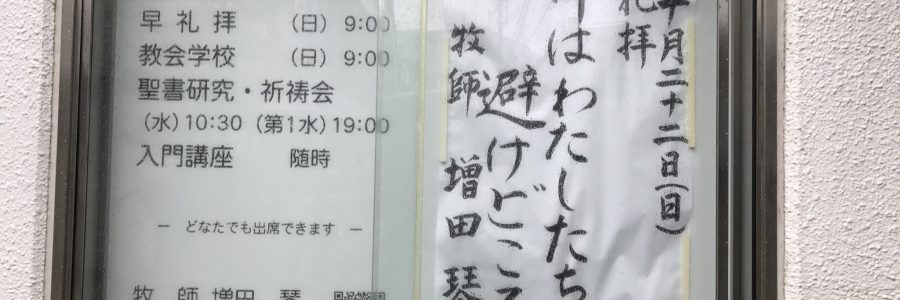 早礼拝 (日) 9:00
教会学校 (日) 9:00
聖書研究・祈祷会
(水) 10:30 (第1水) 19:00
入門講座 随時
― どなたでも出席できます ―
牧 師 増田 琴
月二十二日(日)
礼拝
はわたしたち
避けどころ
牧師 増田 琴